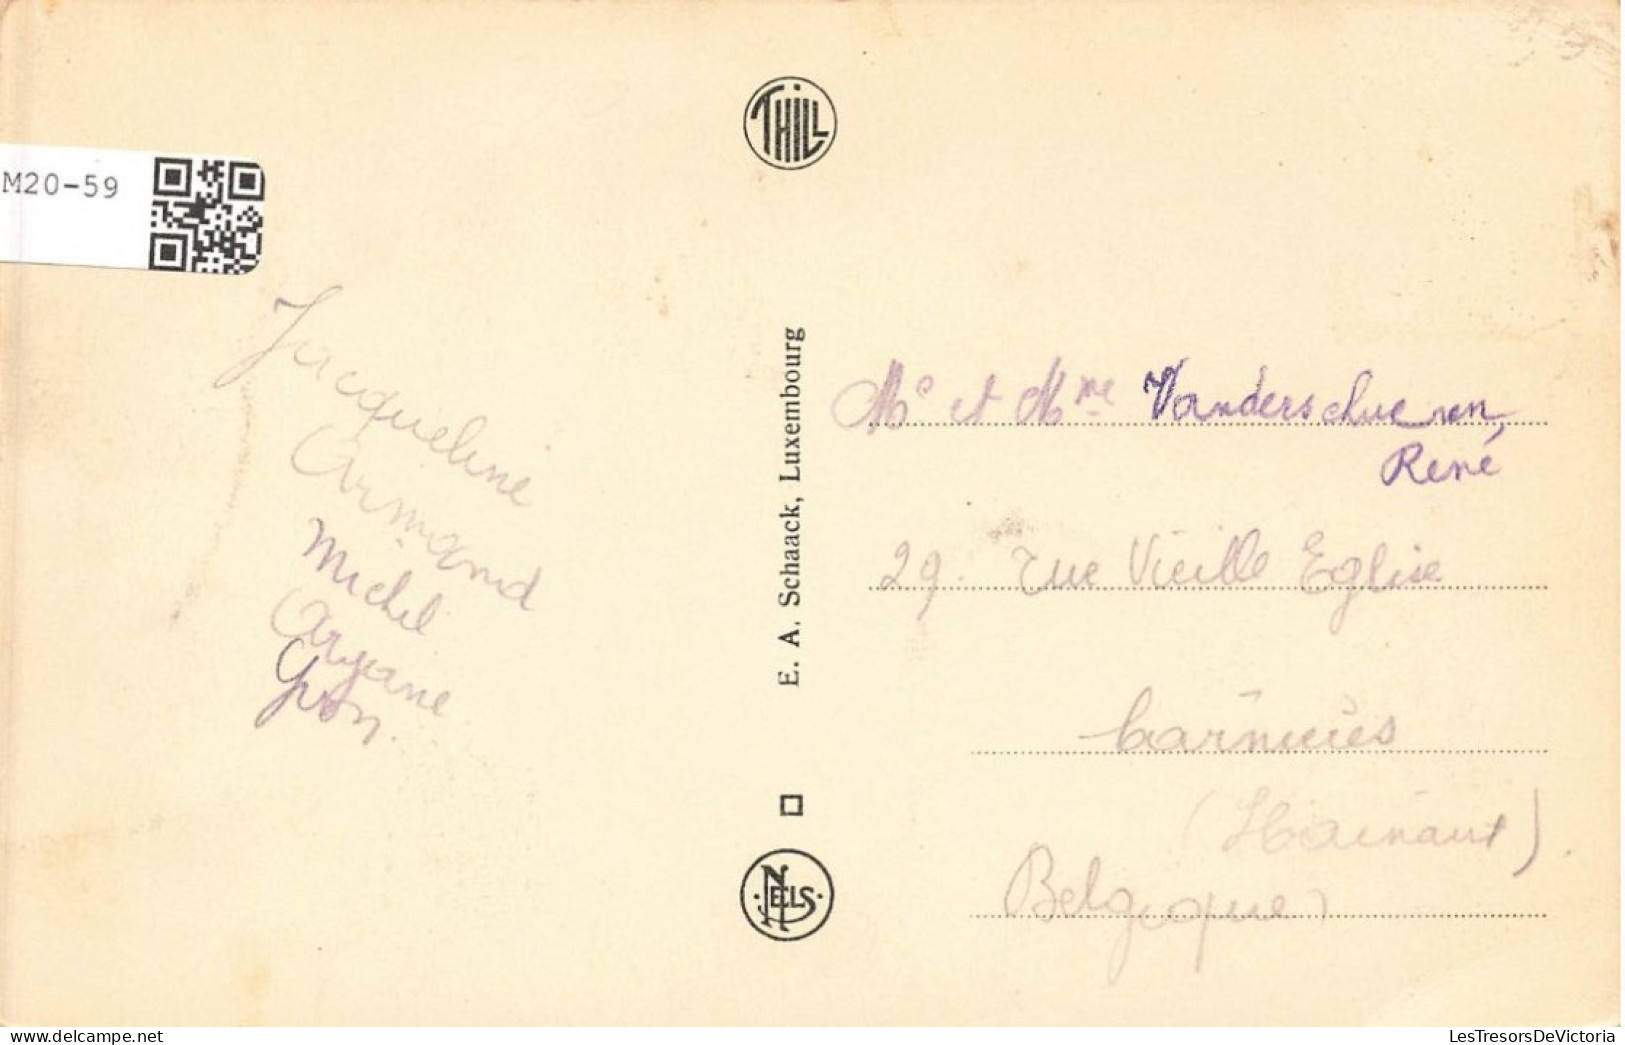 THILL
M20-59
Jacqueline
Armand
Michel
Aryane
Yvon.
E. A. Schaack, Luxembourg
NELS
Mr et Mme Vanderschueren,
René
29. rue Vieille Eglise
Carnières
(Hainaut)
Belgique
LesTresorsDeVictoria